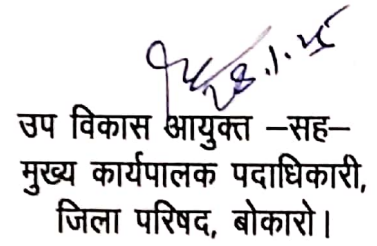 28.1.25
उप विकास आयुक्त –सह–
मुख्य कार्यपालक पदाधिकारी,
जिला परिषद, बोकारो।